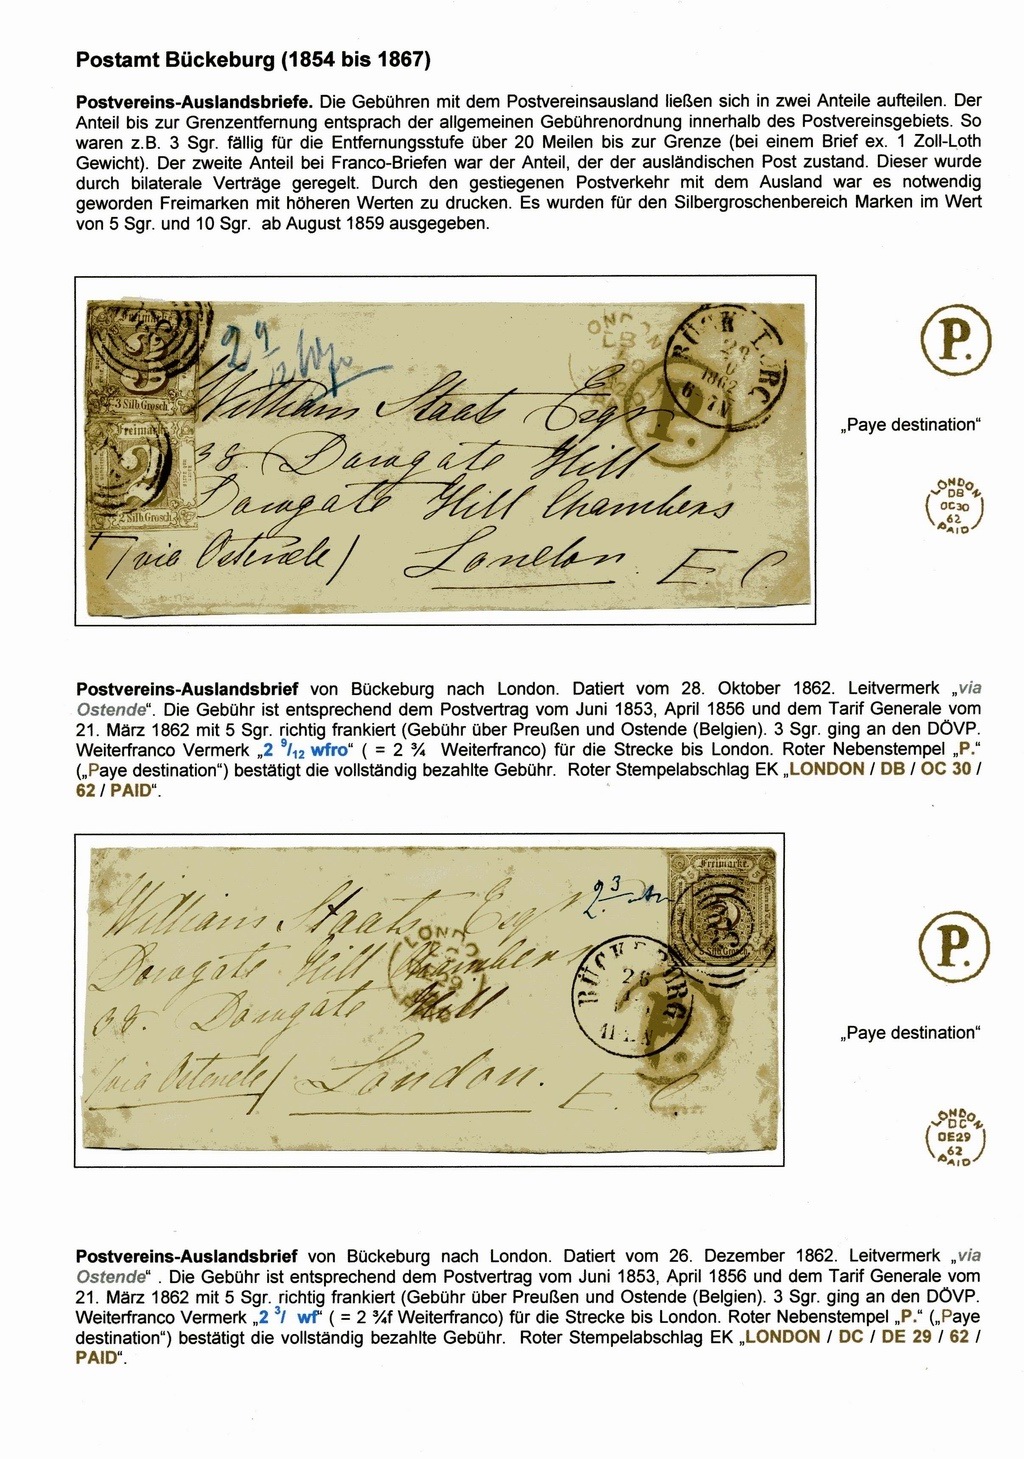 Postamt Bückeburg (1854 bis 1867)
Postvereins-Auslandsbriefe. Die Gebühren mit dem Postvereinsausland ließen sich in zwei Anteile aufteilen. Der
Anteil bis zur Grenzentfernung entsprach der allgemeinen Gebührenordnung innerhalb des Postvereinsgebiets. So
waren z.B. 3 Sgr. fällig für die Entfernungsstufe über 20 Meilen bis zur Grenze (bei einem Brief ex. 1 Zoll-Loth
Gewicht). Der zweite Anteil bei Franco-Briefen war der Anteil, der der ausländischen Post zustand. Dieser wurde
durch bilaterale Verträge geregelt. Durch den gestiegenen Postverkehr mit dem Ausland war es notwendig
geworden Freimarken mit höheren Werten zu drucken. Es wurden für den Silbergroschenbereich Marken im Wert
von 5 Sgr. und 10 Sgr. ab August 1859 ausgegeben.
Freimarke
3 Silb.Grosch.
Freimarke
2 Silb.Grosch.
2 9/12 wfro
BÜCKEBURG
28
1862
6 7 N
P.
William Staats Esqr
38. Dowgate Hill
Dowgate Hill Chambers
(via Ostende) London E. C.
P.
„Paye destination“
LONDON
DB
OC30
62
PAID
Postvereins-Auslandsbrief von Bückeburg nach London. Datiert vom 28. Oktober 1862. Leitvermerk „via
Ostende“. Die Gebühr ist entsprechend dem Postvertrag vom Juni 1853, April 1856 und dem Tarif Generale vom
21. März 1862 mit 5 Sgr. richtig frankiert (Gebühr über Preußen und Ostende (Belgien). 3 Sgr. ging an den DÖVP.
Weiterfranco Vermerk „2 9/12 wfro“ ( = 2 ¾ Weiterfranco) für die Strecke bis London. Roter Nebenstempel „P.“
(„Paye destination“) bestätigt die vollständig bezahlte Gebühr. Roter Stempelabschlag EK „LONDON / DB / OC 30 /
62 / PAID“.
Freimarke.
5 Silb.Grosch.
William Staats Esqr
Dowgate Hill Chambers
38. Dowgate Hill
(via Ostende) London. E. C.
LONDON
29
BÜCKEBURG
26
P.
P.
„Paye destination“
LONDON
DC
DE29
62
PAID
Postvereins-Auslandsbrief von Bückeburg nach London. Datiert vom 26. Dezember 1862. Leitvermerk „via
Ostende“ . Die Gebühr ist entsprechend dem Postvertrag vom Juni 1853, April 1856 und dem Tarif Generale vom
21. März 1862 mit 5 Sgr. richtig frankiert (Gebühr über Preußen und Ostende (Belgien). 3 Sgr. ging an den DÖVP.
Weiterfranco Vermerk „2 3/ wf“ ( = 2 ¾f Weiterfranco) für die Strecke bis London. Roter Nebenstempel „P.“ („Paye
destination“) bestätigt die vollständig bezahlte Gebühr. Roter Stempelabschlag EK „LONDON / DC / DE 29 / 62 /
PAID“.